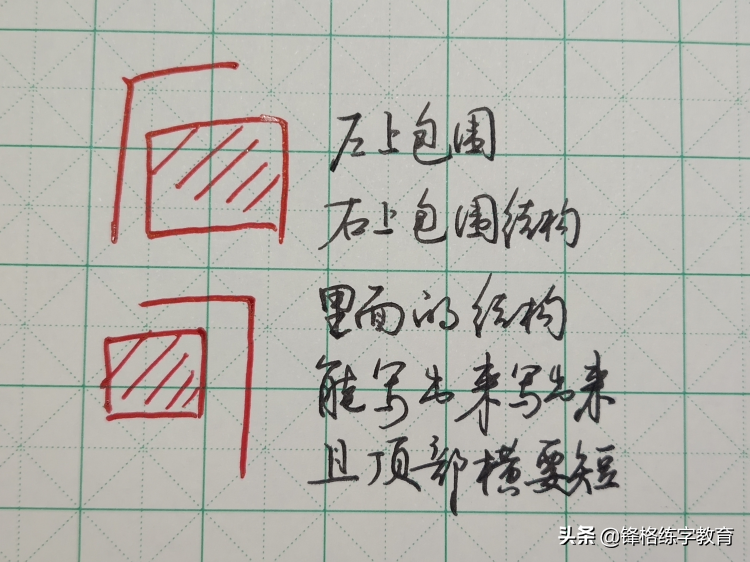 左上包围
右上包围结构
里面的结构
能写出来写出来
且顶部横要短
头条 @锋格练字教育